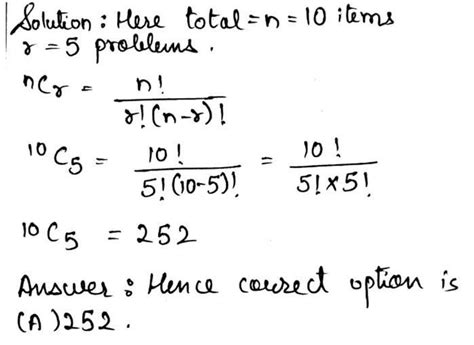 Solution : Here total = n = 10 items
r = 5 problems .
nCr = n! / r!(n-r)!
10C5 = 10! / 5!(10-5)! = 10! / 5!×5!
10C5 = 252
Answer : Hence correct option is
(A) 252 .